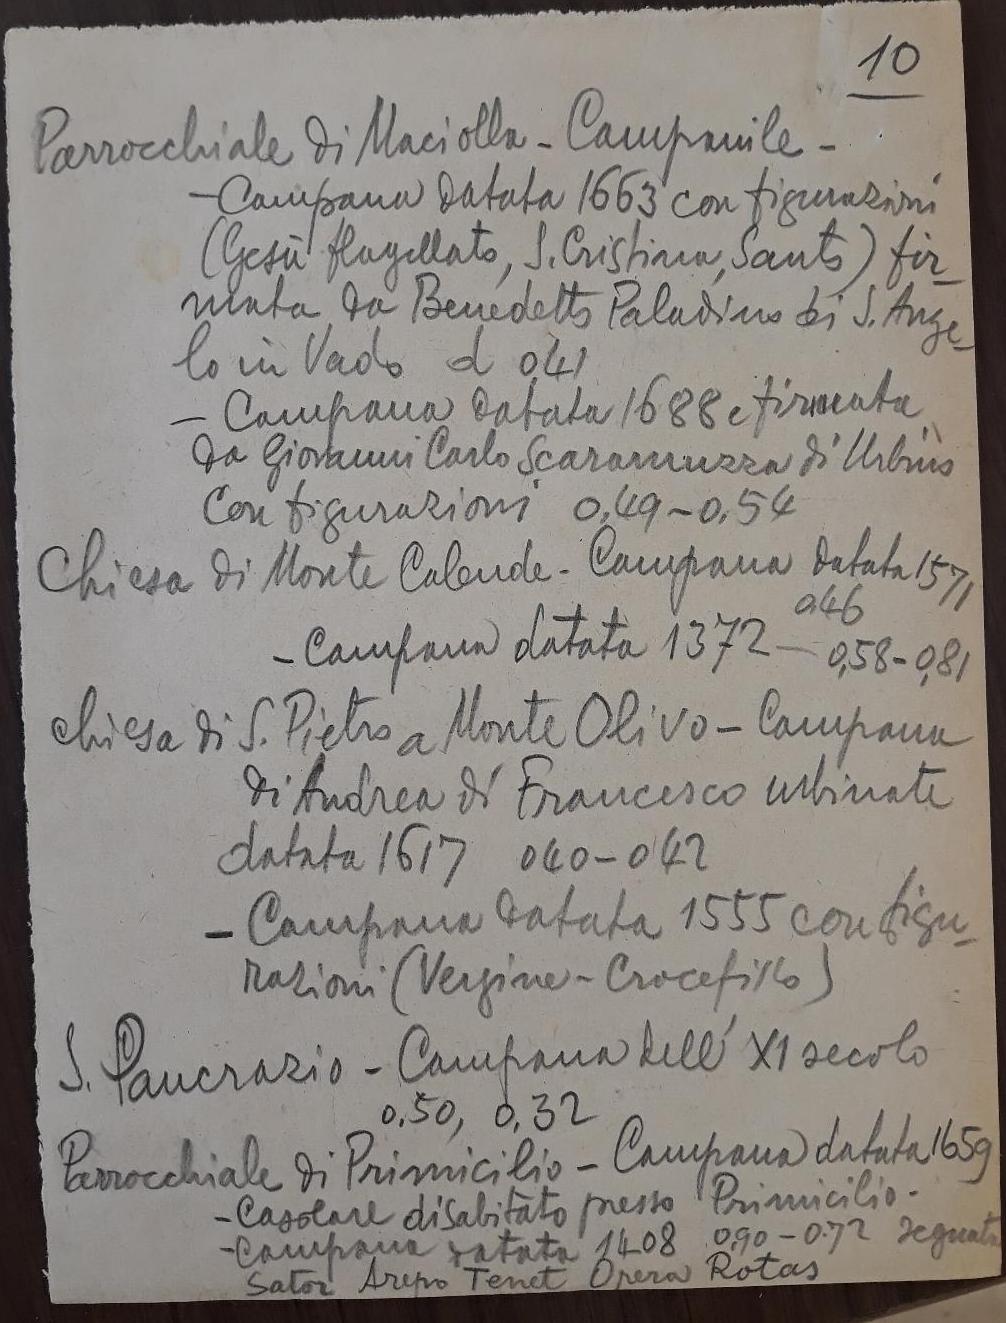 10
Parrocchiale di Maciolla - Campanile -
- Campana datata 1663 con figurazioni
(Gesù flagellato, S. Cristina, Santo) fir-
mata da Benedetto Paladino di S. Ange-
lo in Vado d 041
- Campana datata 1688 e firmata
da Giovanni Carlo Scaramuzza di Urbino
con figurazioni 0,49-0,54
Chiesa di Monte Calende - Campana datata 1571
046
- Campana datata 1372 - 0,58-0,81
Chiesa di S. Pietro a Monte Olivo - Campana
di Andrea di Francesco urbinate
datata 1617 040-042
- Campana datata 1555 con figu-
razioni (Vergine - Crocefisso)
S. Pancrazio - Campana dell' XI secolo
0,50, 0,32
Parrocchiale di Primicilio - Campana datata 1659
- Casolare disabitato presso Primicilio -
- Campana datata 1408 0,90-0.72 segnata
Sator Arepo Tenet Opera Rotas